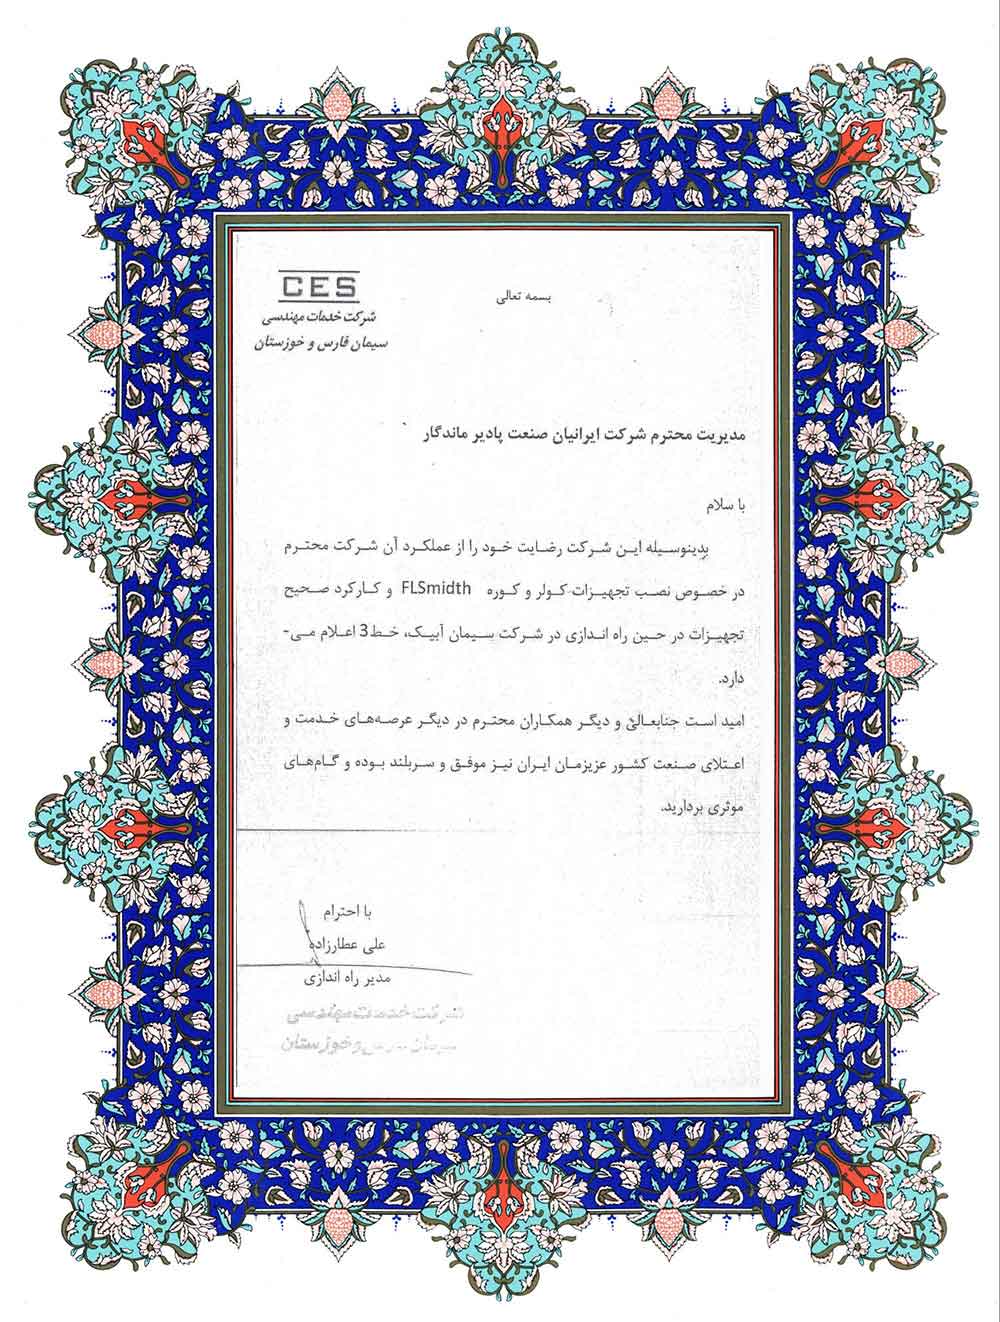 بسمه تعالی
CES
شرکت خدمات مهندسی
سیمان فارس و خوزستان
مدیریت محترم شرکت ایرانیان صنعت پادیر ماندگار
با سلام
بدینوسیله این شرکت رضایت خود را از عملکرد آن شرکت محترم
در خصوص نصب تجهیزات کولر و کوره FLSmidth و کارکرد صحیح
تجهیزات در حین راه اندازی در شرکت سیمان آبیک، خط 3 اعلام می-
دارد.
امید است جنابعالی و دیگر همکاران محترم در دیگر عرصه‌های خدمت و
اعتلای صنعت کشور عزیزمان ایران نیز موفق و سربلند بوده و گام‌های
موثری بردارید.
با احترام
علی عطارزاده
مدیر راه اندازی
شرکت خدمات مهندسی
سیمان فارس و خوزستان